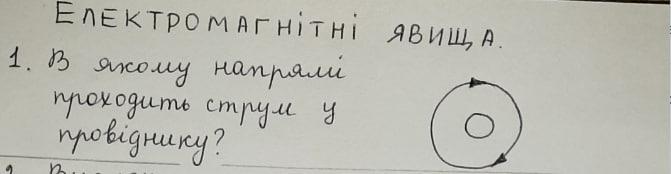 ЕЛЕКТРОМАГНІТНІ ЯВИЩА.
1. В якому напрямі
проходить струм у
провіднику?